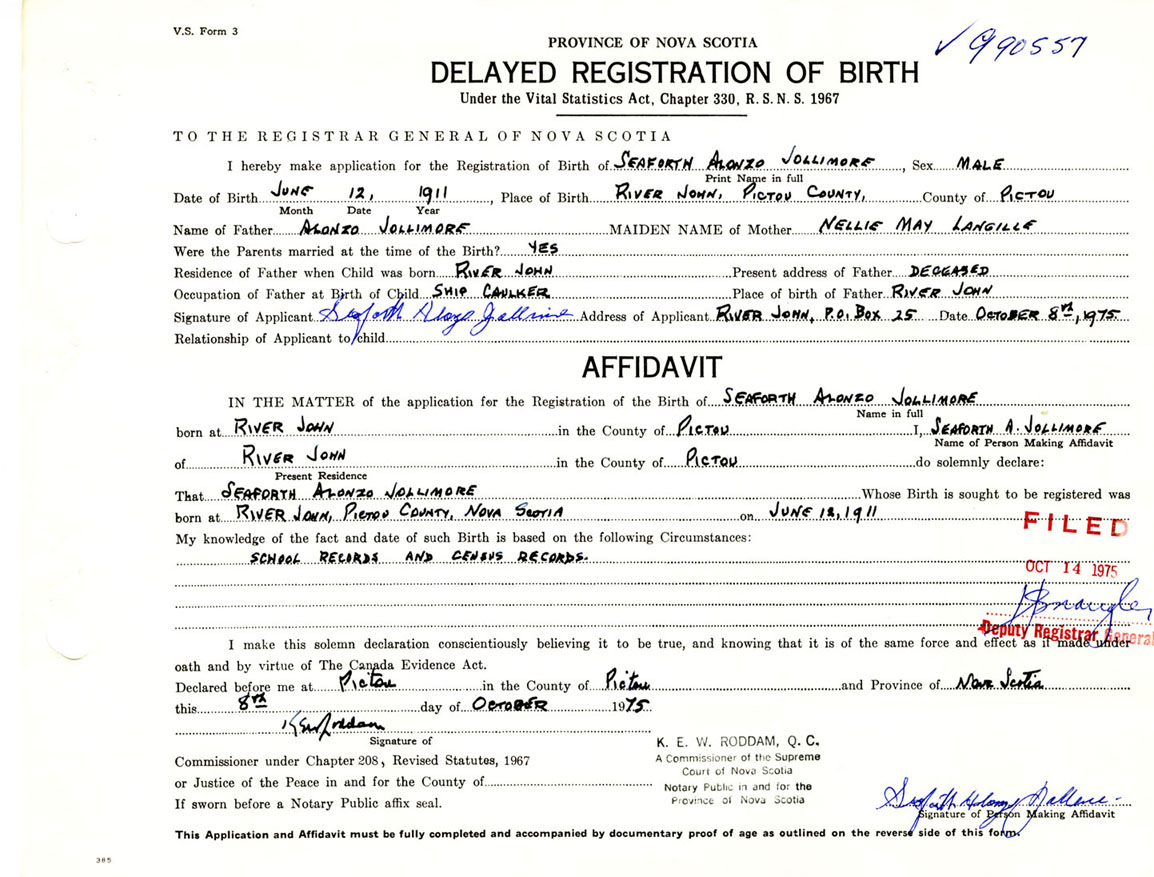 V.S. Form 3
PROVINCE OF NOVA SCOTIA
✓ 990557
DELAYED REGISTRATION OF BIRTH
Under the Vital Statistics Act, Chapter 330, R. S. N. S. 1967
TO THE REGISTRAR GENERAL OF NOVA SCOTIA
I hereby make application for the Registration of Birth of SEAFORTH ALONZO JOLLIMORE, Sex MALE
Print Name in full
Date of Birth JUNE 12, 1911, Place of Birth RIVER JOHN, PICTOU COUNTY, County of PICTOU
Month Date Year
Name of Father ALONZO JOLLIMORE MAIDEN NAME of Mother NELLIE MAY LANGILLE
Were the Parents married at the time of the Birth? YES
Residence of Father when Child was born RIVER JOHN Present address of Father DECEASED
Occupation of Father at Birth of Child SHIP CAULKER Place of birth of Father RIVER JOHN
Signature of Applicant Seaforth Alonzo Jollimore Address of Applicant RIVER JOHN, P.O. BOX 25 Date OCTOBER 8TH, 1975
Relationship of Applicant to child
AFFIDAVIT
IN THE MATTER of the application for the Registration of the Birth of SEAFORTH ALONZO JOLLIMORE
Name in full
born at RIVER JOHN in the County of PICTOU I, SEAFORTH A. JOLLIMORE
Name of Person Making Affidavit
of RIVER JOHN in the County of PICTOU do solemnly declare:
Present Residence
That SEAFORTH ALONZO JOLLIMORE Whose Birth is sought to be registered was
born at RIVER JOHN, PICTOU COUNTY, NOVA SCOTIA on JUNE 12, 1911
FILED
My knowledge of the fact and date of such Birth is based on the following Circumstances:
SCHOOL RECORDS AND CENSUS RECORDS.
OCT 14 1975
Deputy Registrar General
I make this solemn declaration conscientiously believing it to be true, and knowing that it is of the same force and effect as if made under
oath and by virtue of The Canada Evidence Act.
Declared before me at Pictou in the County of Pictou and Province of Nova Scotia
this 8th day of OCTOBER 1975
KEWRoddam
Signature of
Commissioner under Chapter 208, Revised Statutes, 1967
or Justice of the Peace in and for the County of
If sworn before a Notary Public affix seal.
K. E. W. RODDAM, Q. C.
A Commissioner of the Supreme
Court of Nova Scotia
Notary Public in and for the
Province of Nova Scotia
Seaforth Alonzo Jollimore
Signature of Person Making Affidavit
This Application and Affidavit must be fully completed and accompanied by documentary proof of age as outlined on the reverse side of this form.
385